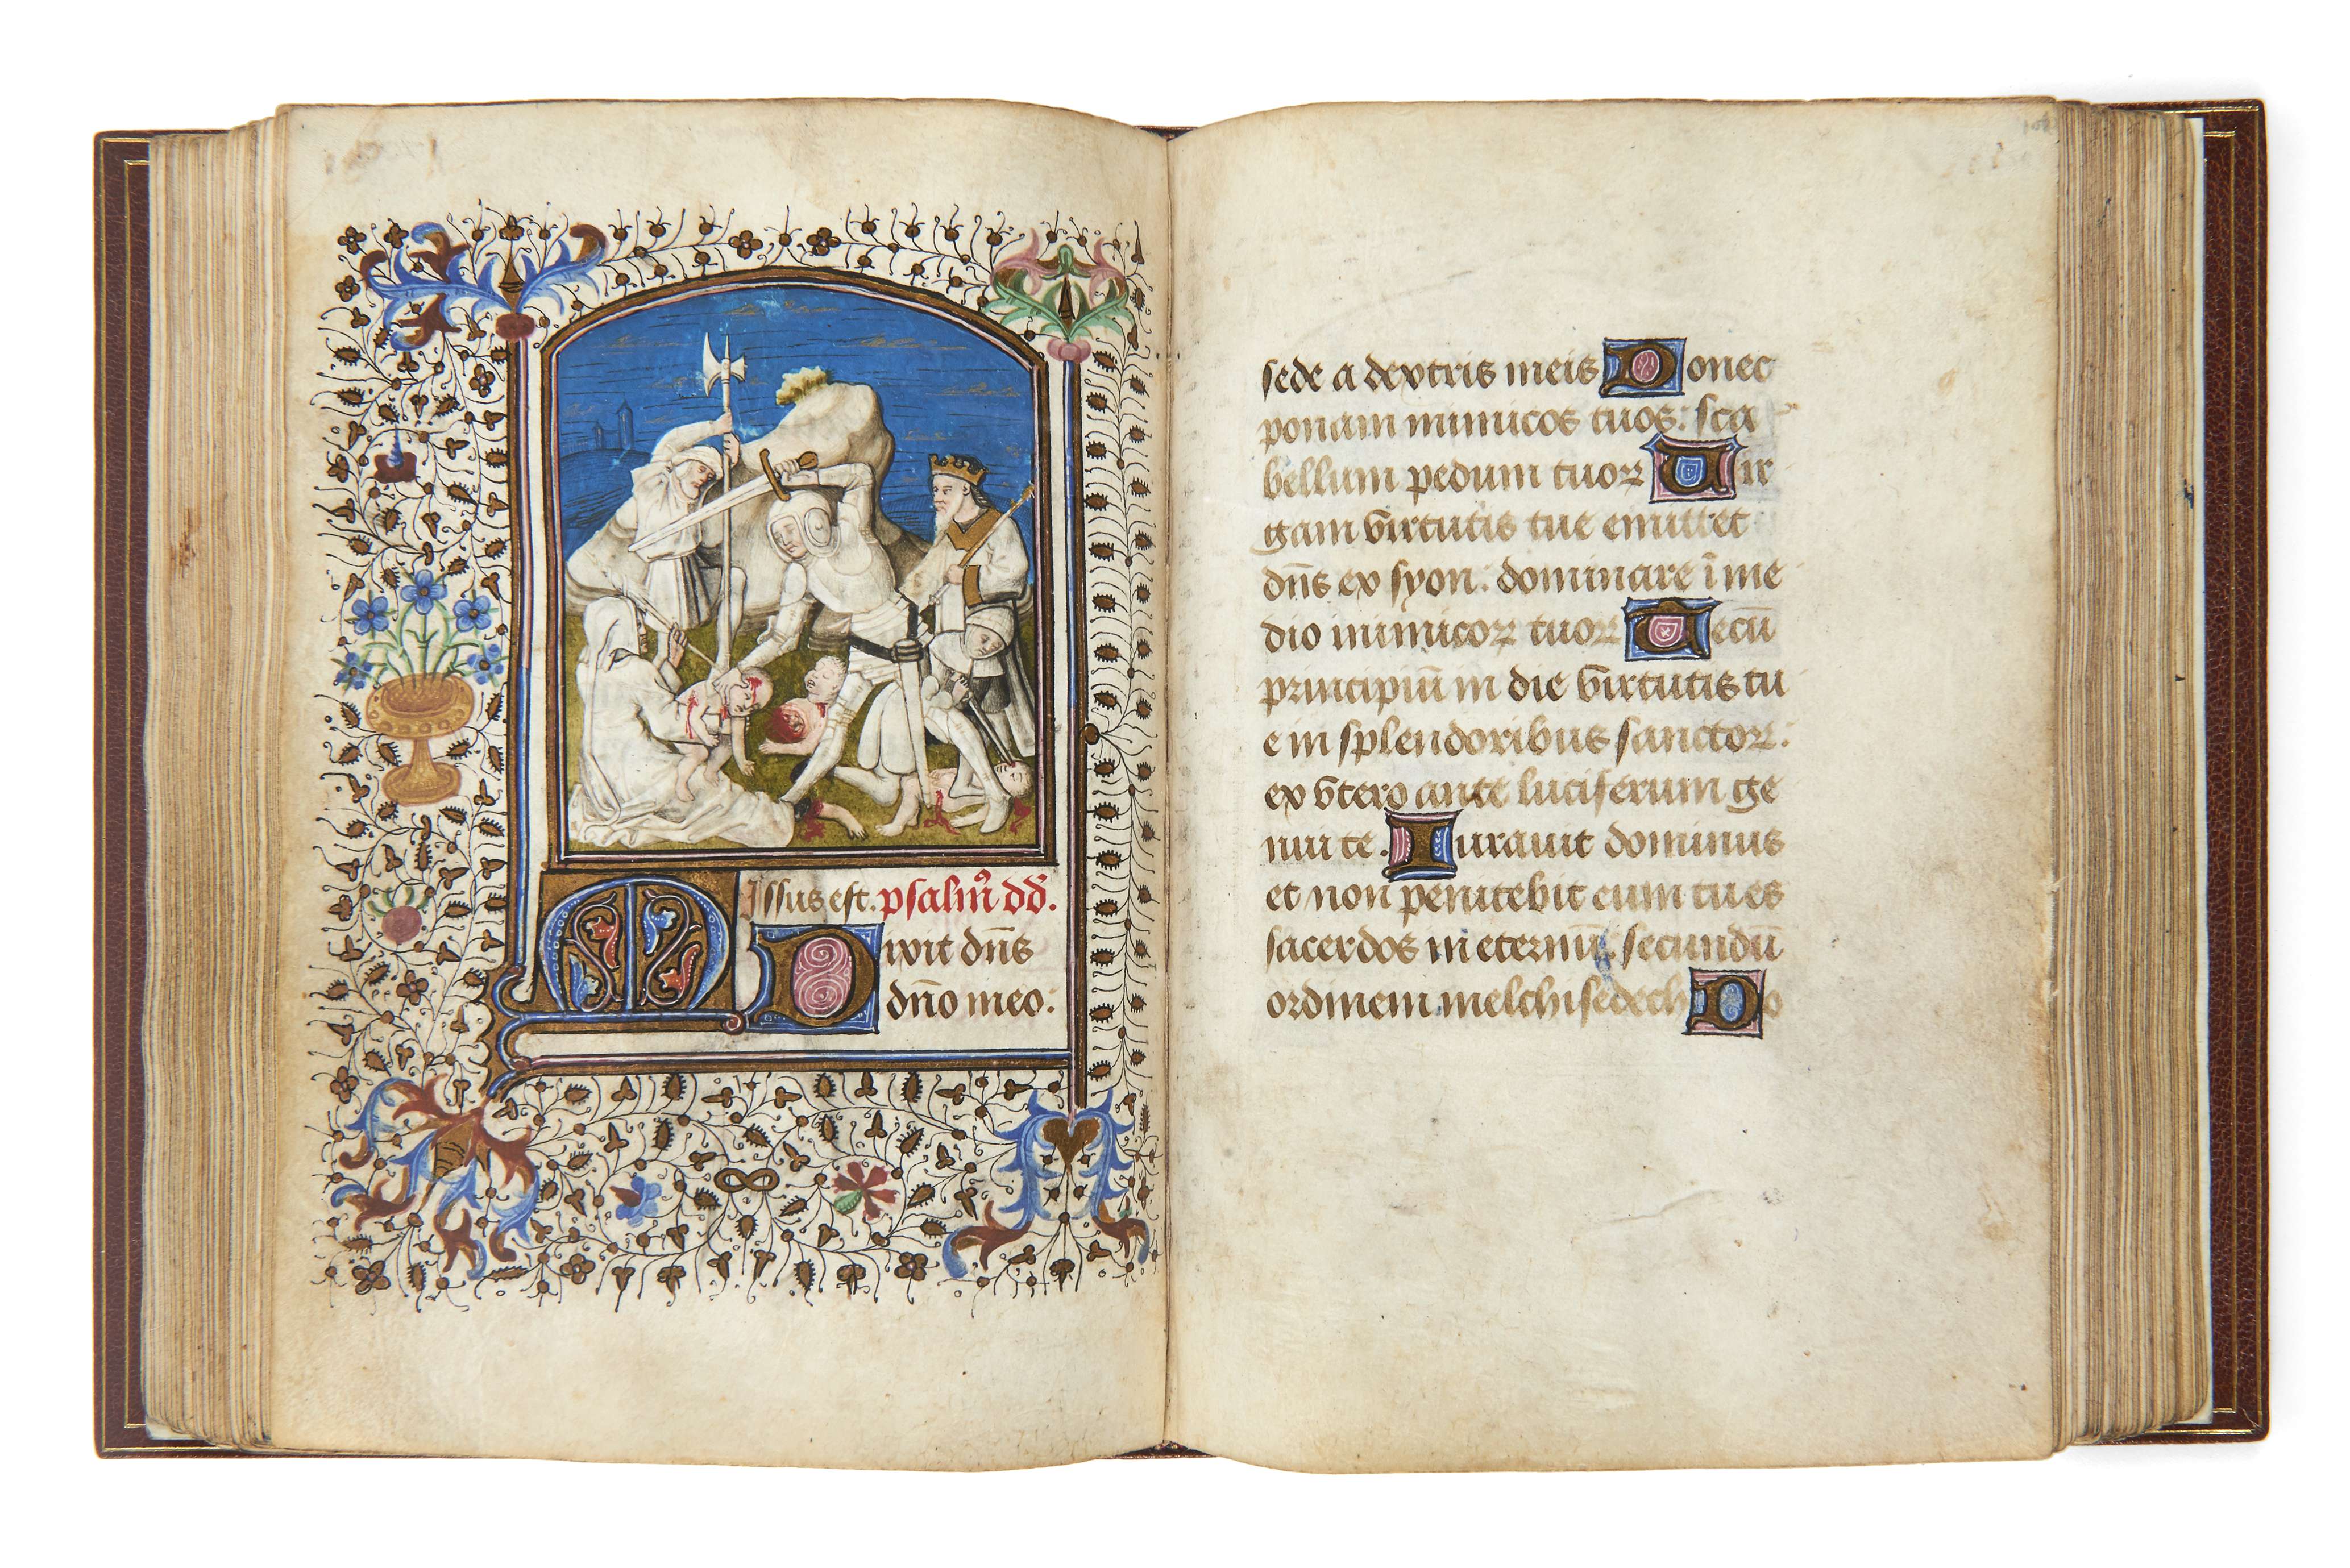 Missus est. psalm̄ dd̄.
Dixit dn̄s
dn̄o meo:
sede a dextris meis Donec
ponam inimicos tuos: sca
bellum pedum tuoꝝ Uir
gam virtutis tue emittet
dn̄s ex syon: dominare ī me
dio inimicoꝝ tuoꝝ Tecū
principiū in die virtutis tu
e in splendoribus sanctoꝝ:
ex vtero ante luciferum ge
nui te. Iurauit dominus
et non penitebit eum tu es
sacerdos in eternū: secundū
ordinem melchisedech Do